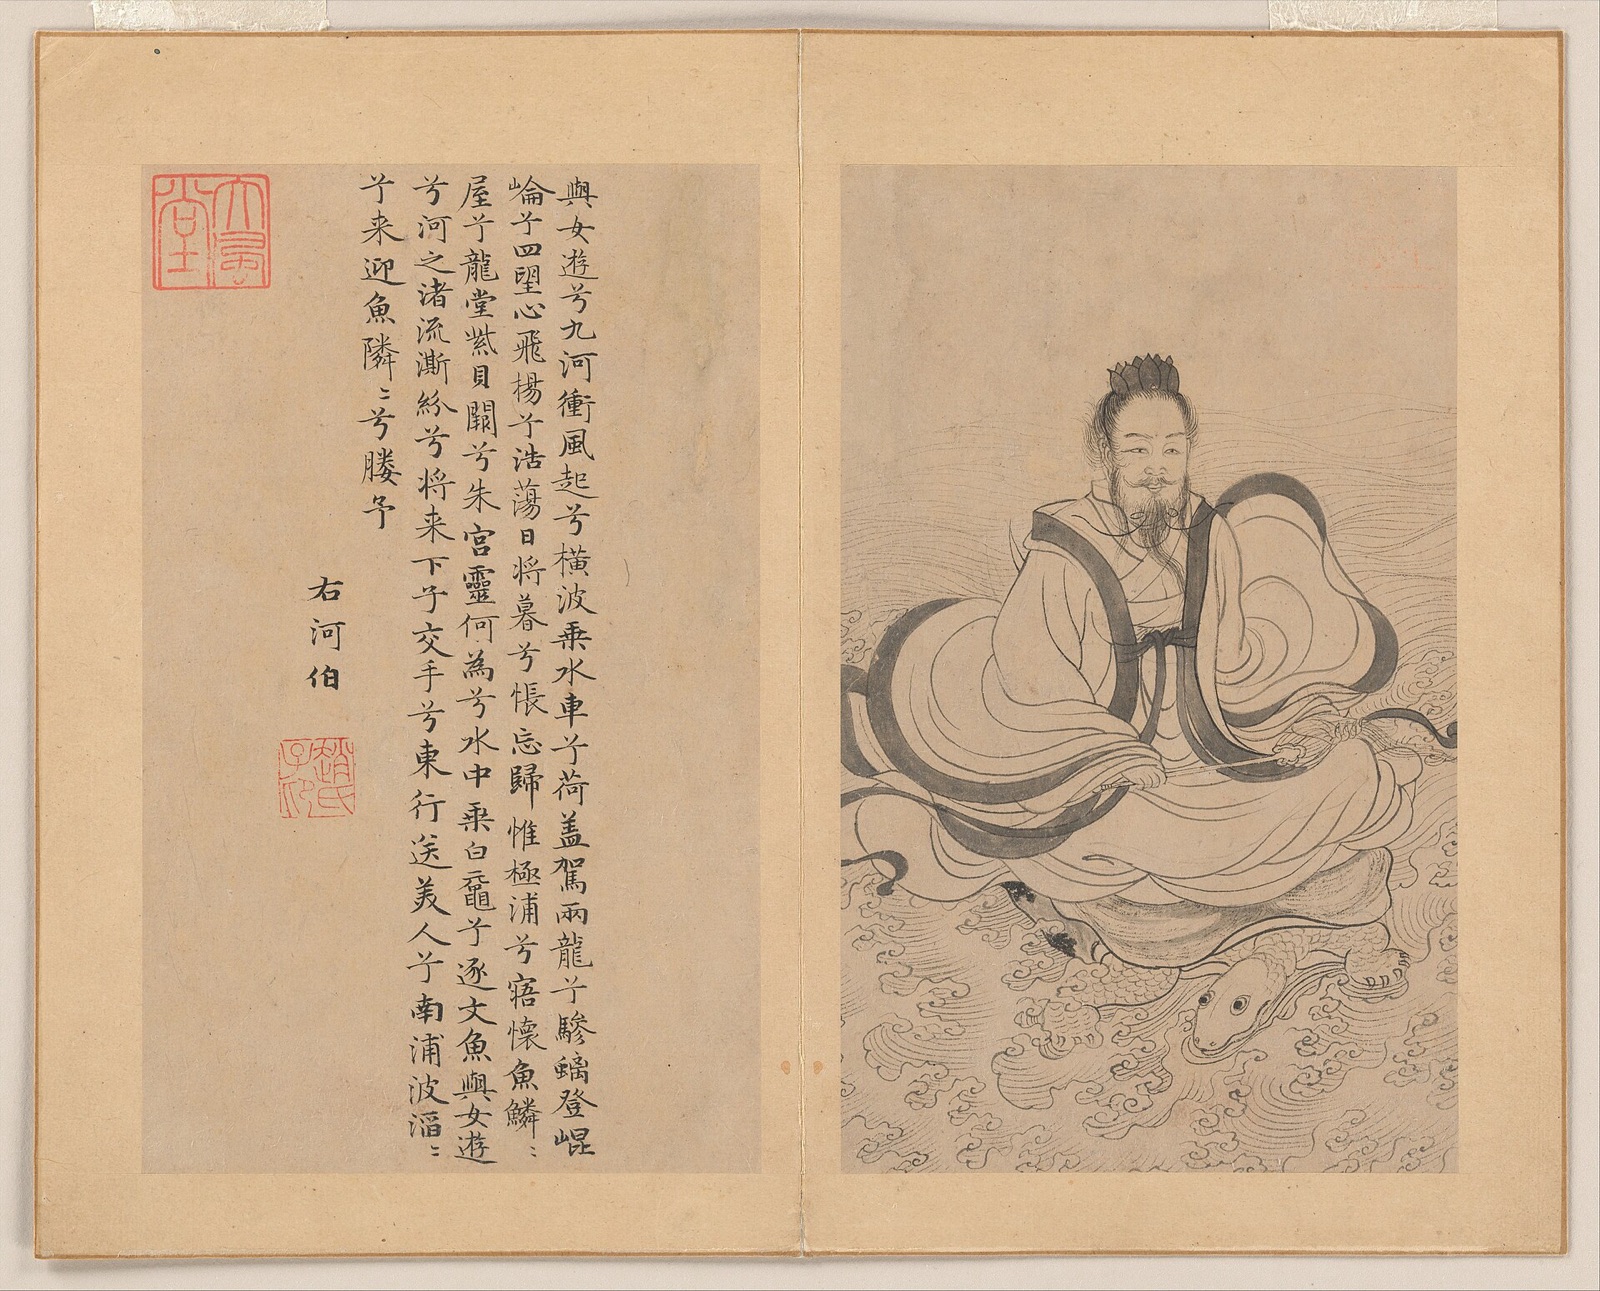 與女遊兮九河衝風起兮橫波乗水車兮荷盖駕兩龍兮驂螭登崐
崘兮四望心飛楊兮浩蕩日将暮兮悵忘歸惟極浦兮寤懷魚鱗〻
屋兮龍堂紫貝闕兮朱宮靈何為兮水中乗白黿兮逐文魚與女遊
兮河之渚流澌紛兮将来下子交手兮東行送美人兮南浦波滔〻
兮来迎魚隣〻兮媵予
右河伯
趙氏子昂